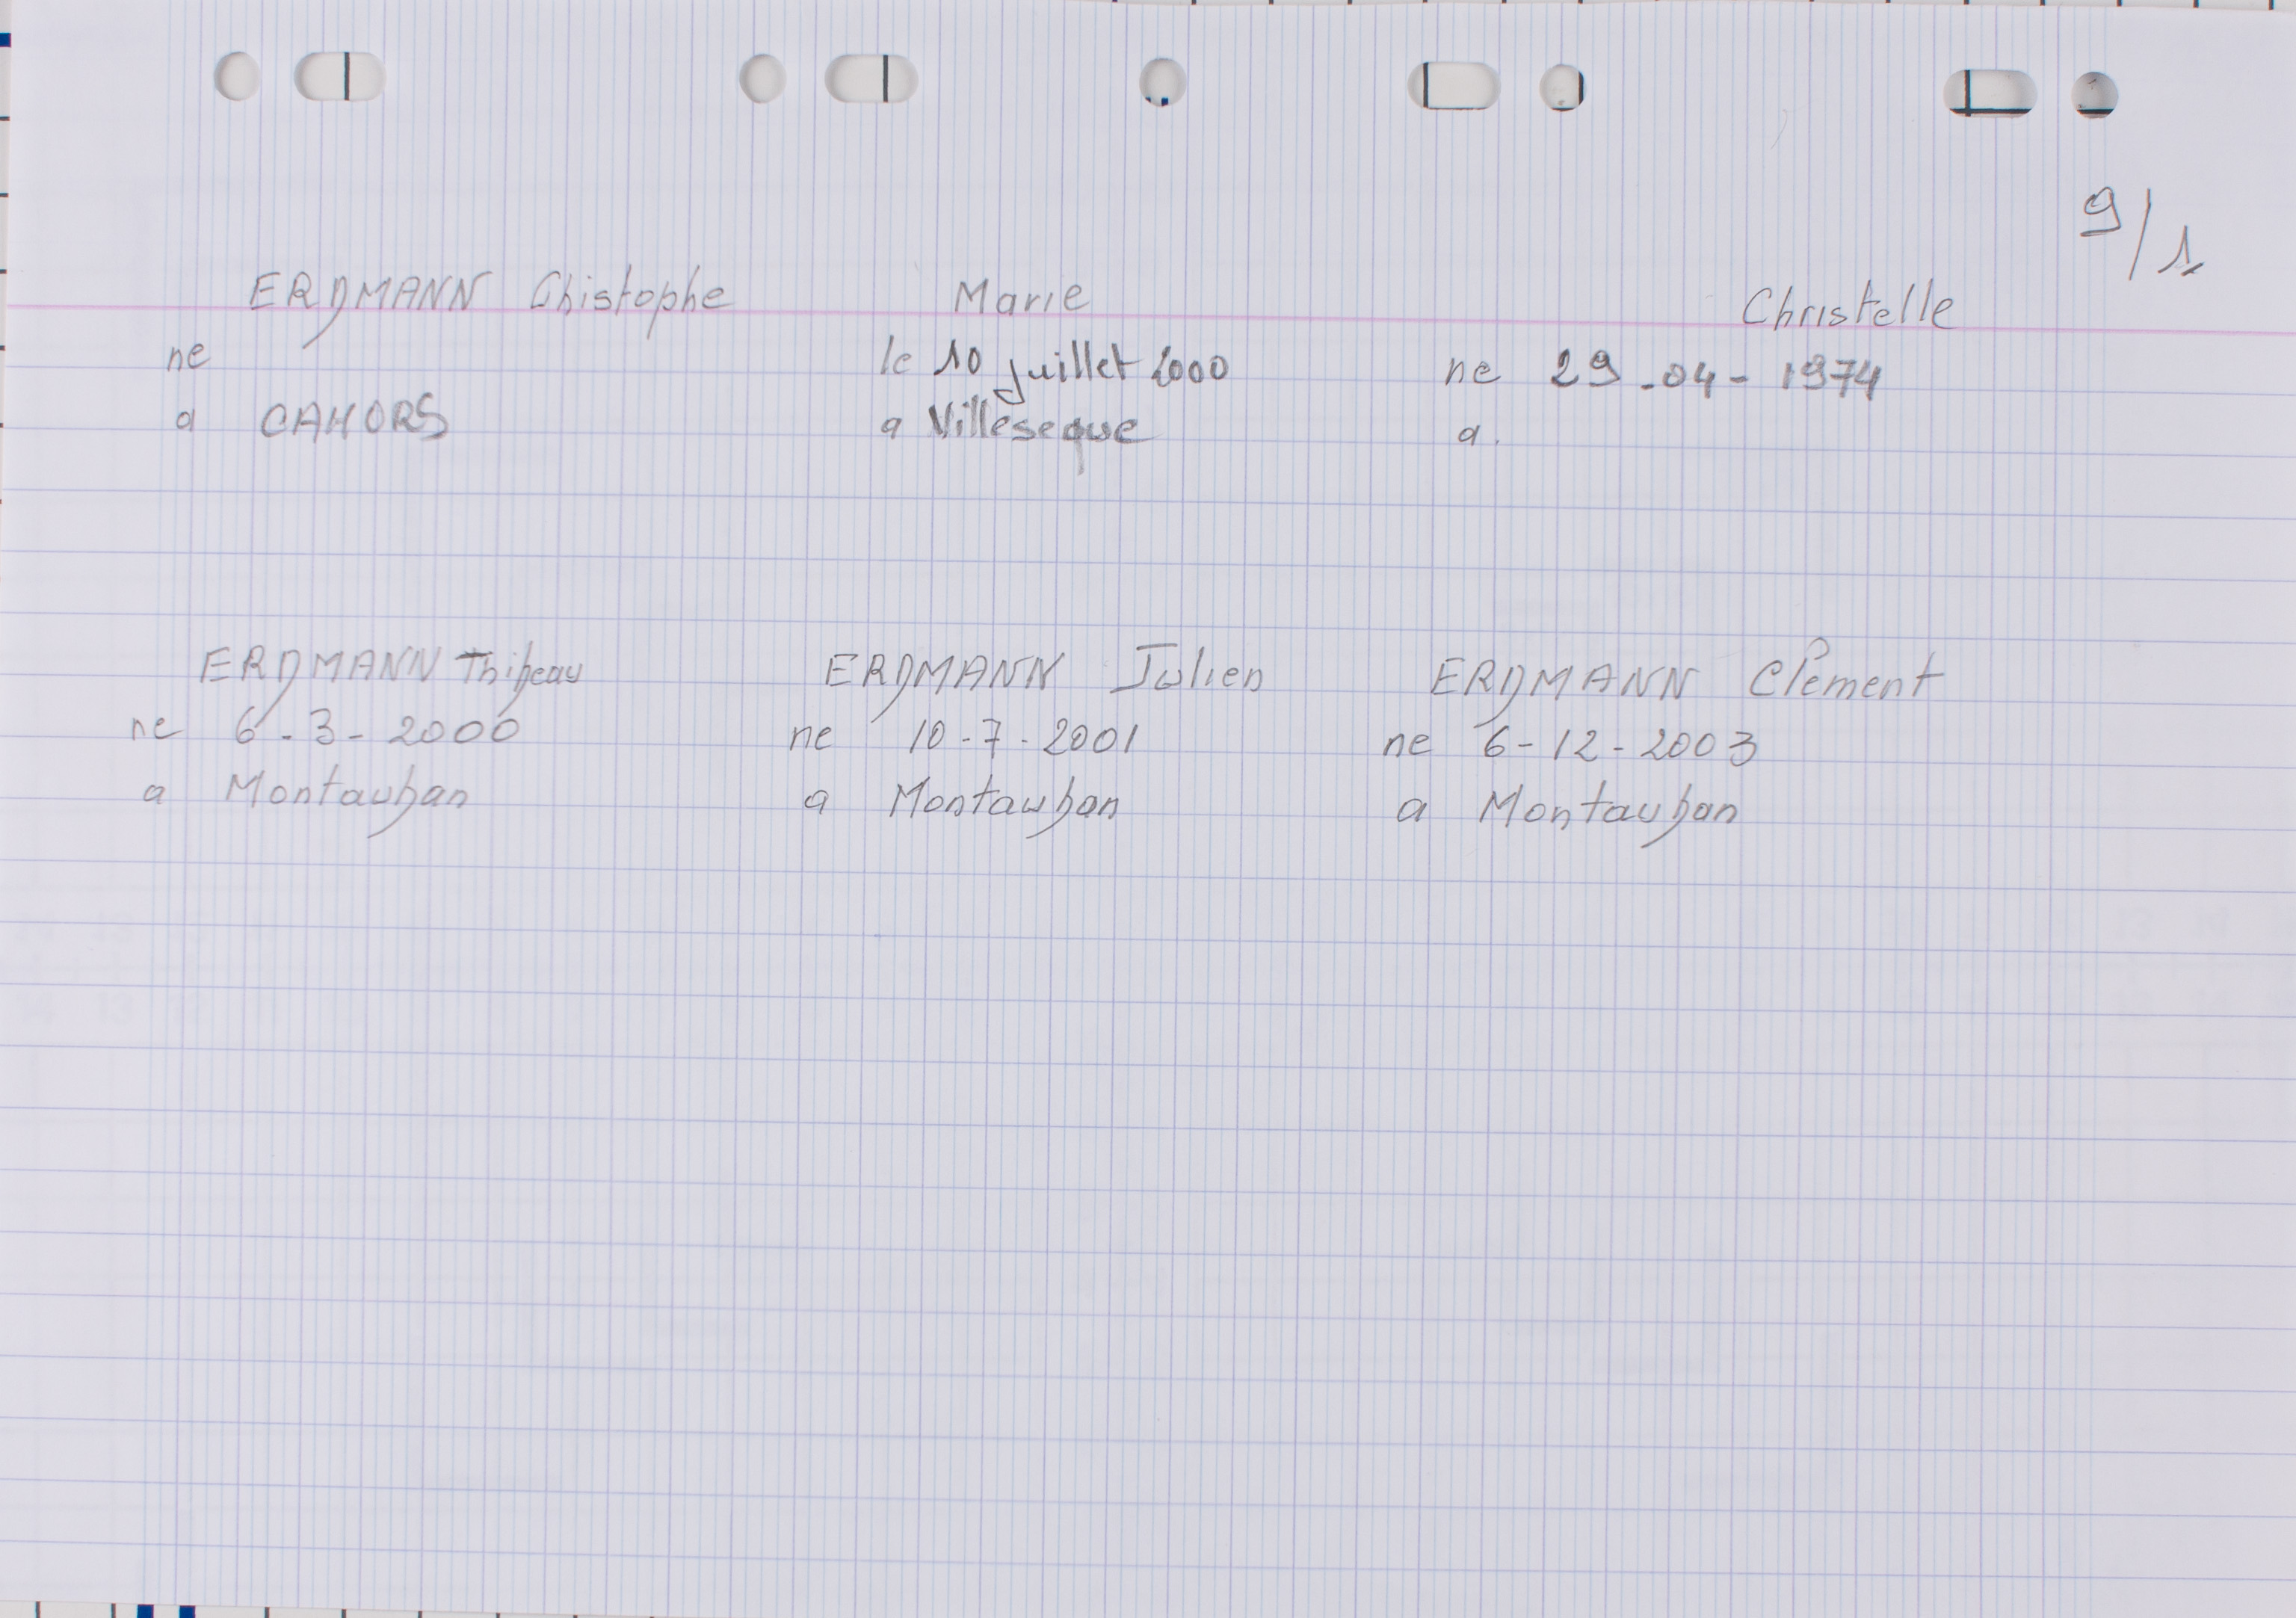 9/1
ERDMANN Chistophe Marie Christelle
ne le 10 juillet 2000 ne 29-04-1974
a CAHORS a Villeseque a.
ERDMANN Thibeau ERDMANN Julien ERDMANN Clément
ne 6-3-2000 ne 10-7-2001 ne 6-12-2003
a Montauban a Montauban a Montauban